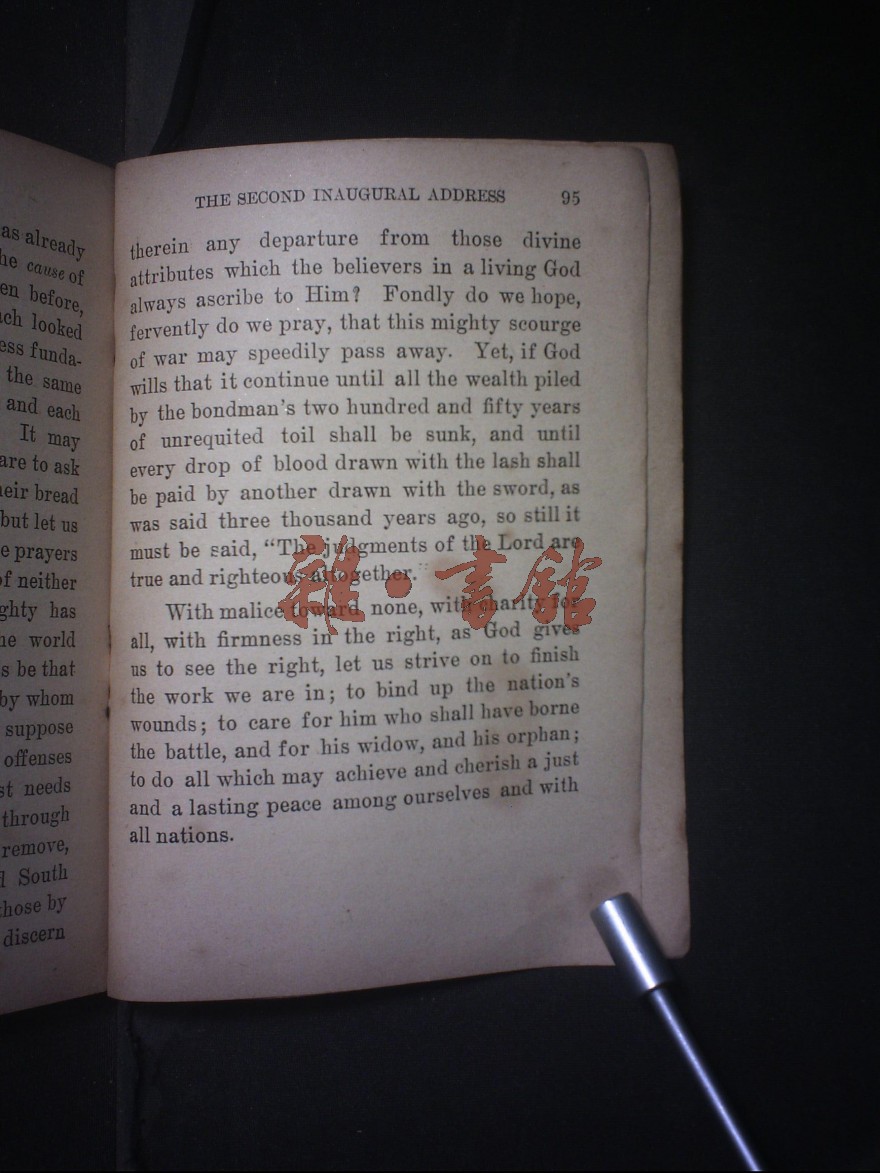 as already
he cause of
en before,
ch looked
ess funda-
the same
and each
It may
are to ask
eir bread
but let us
e prayers
of neither
ghty has
he world
s be that
by whom
suppose
offenses
st needs
through
remove,
d South
those by
discern
THE SECOND INAUGURAL ADDRESS 95
therein any departure from those divine
attributes which the believers in a living God
always ascribe to Him? Fondly do we hope,
fervently do we pray, that this mighty scourge
of war may speedily pass away. Yet, if God
wills that it continue until all the wealth piled
by the bondman's two hundred and fifty years
of unrequited toil shall be sunk, and until
every drop of blood drawn with the lash shall
be paid by another drawn with the sword, as
was said three thousand years ago, so still it
must be said, “The judgments of the Lord are
true and righteous altogether.”
With malice toward none, with charity for
all, with firmness in the right, as God gives
us to see the right, let us strive on to finish
the work we are in; to bind up the nation's
wounds; to care for him who shall have borne
the battle, and for his widow, and his orphan;
to do all which may achieve and cherish a just
and a lasting peace among ourselves and with
all nations.
雜·書館